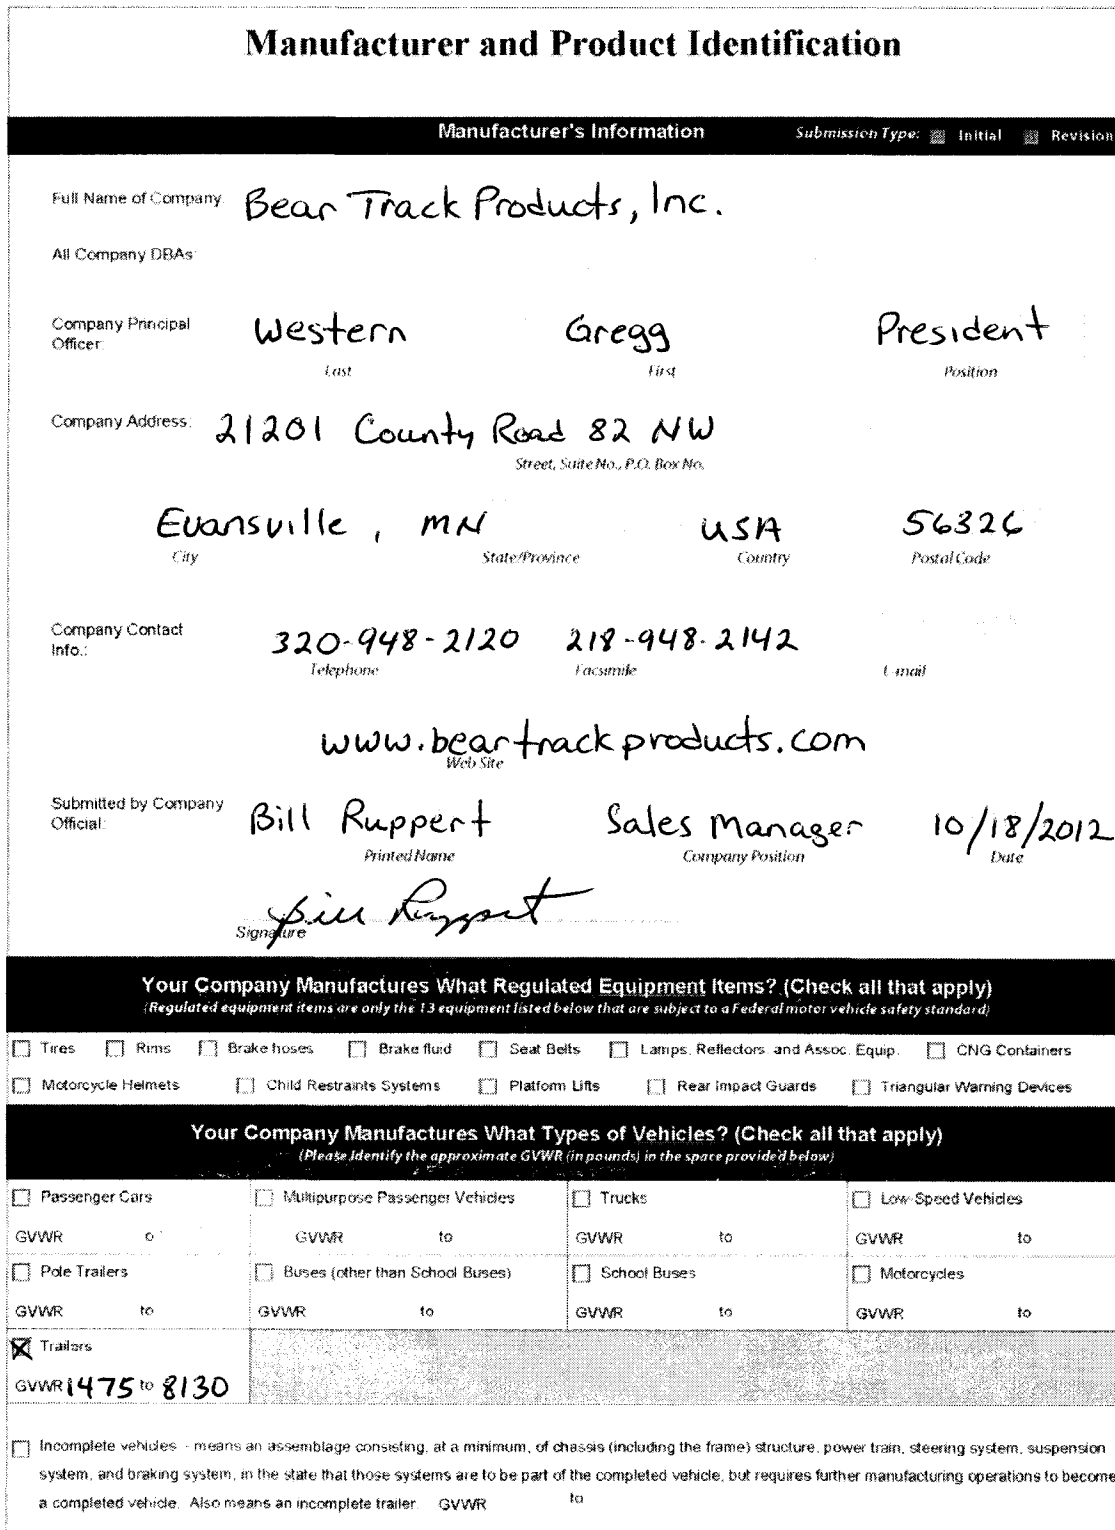 Manufacturer and Product Identification
Manufacturer's Information Submission Type: Initial Revision
Full Name of Company: Bear Track Products, Inc.
All Company DBAs:
Company Principal Officer: Western Gregg President
Last First Position
Company Address: 21201 County Road 82 NW
Street, Suite No., P.O. Box No.
Evansville, MN USA 56326
City State/Province Country Postal Code
Company Contact Info.: 320-948-2120 218-948-2142
Telephone Facsimile E-mail
www.beartrackproducts.com
Web Site
Submitted by Company Official: Bill Ruppert Sales Manager 10/18/2012
Printed Name Company Position Date
Bill Ruppert
Signature
Your Company Manufactures What Regulated Equipment Items? (Check all that apply)
(Regulated equipment items are only the 13 equipment listed below that are subject to a Federal motor vehicle safety standard)
Tires Rims Brake hoses Brake fluid Seat Belts Lamps, Reflectors, and Assoc. Equip. CNG Containers
Motorcycle Helmets Child Restraints Systems Platform Lifts Rear Impact Guards Triangular Warning Devices
Your Company Manufactures What Types of Vehicles? (Check all that apply)
(Please Identify the approximate GVWR (in pounds) in the space provided below)
Passenger Cars Multipurpose Passenger Vehicles Trucks Low-Speed Vehicles
GVWR o GVWR to GVWR to GVWR to
Pole Trailers Buses (other than School Buses) School Buses Motorcycles
GVWR to GVWR to GVWR to GVWR to
Trailers
GVWR 1475 to 8130
Incomplete vehicles - means an assemblage consisting, at a minimum, of chassis (including the frame) structure, power train, steering system, suspension
system, and braking system, in the state that those systems are to be part of the completed vehicle, but requires further manufacturing operations to become
a completed vehicle. Also means an incomplete trailer. GVWR to